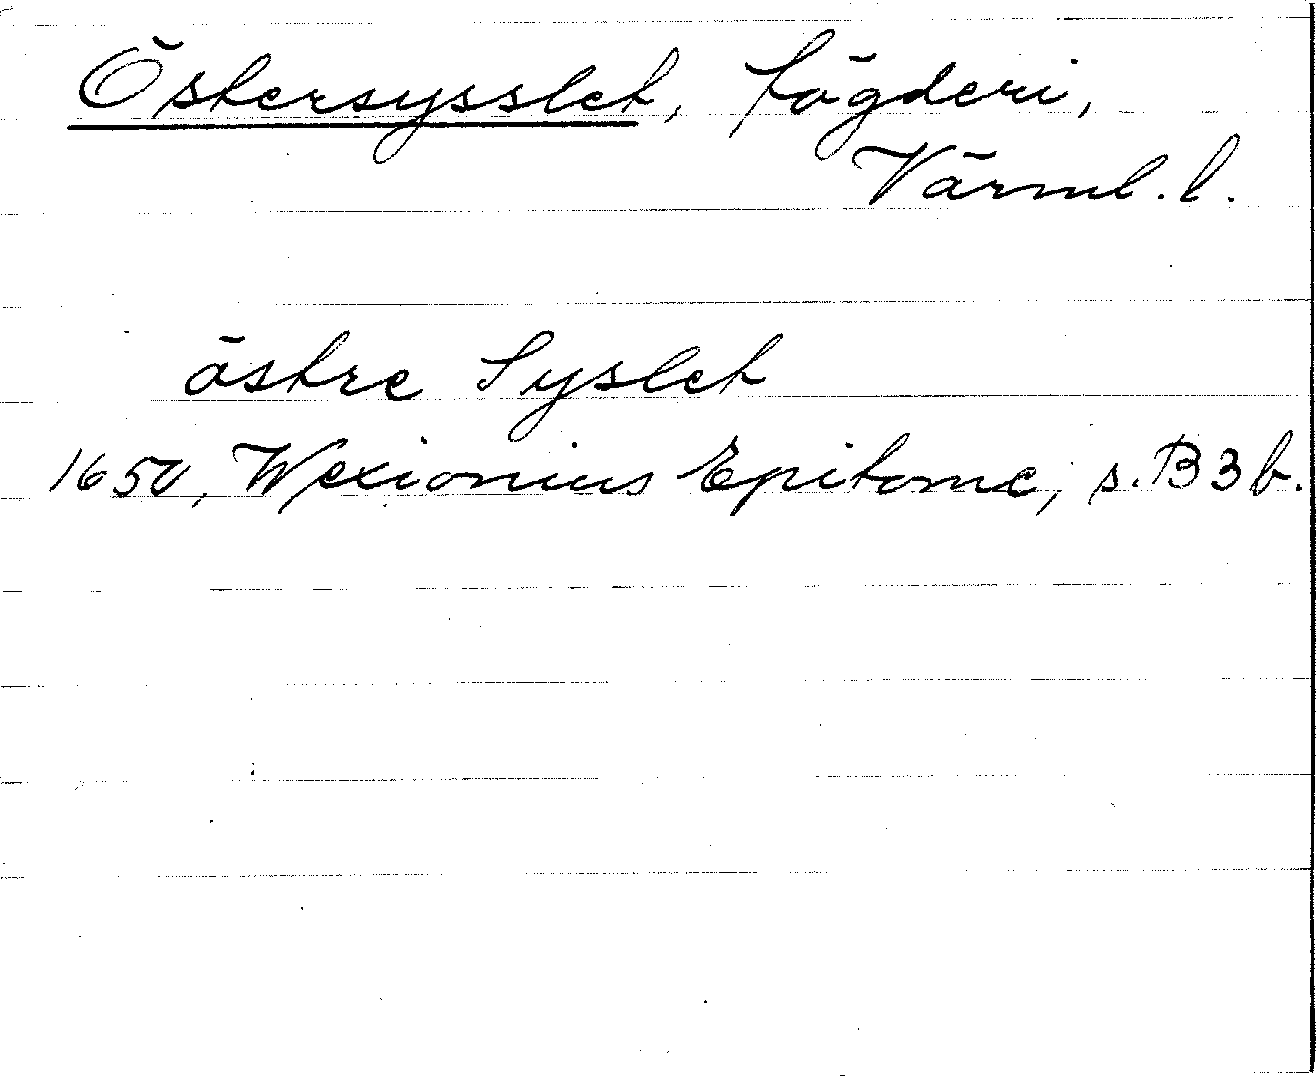 Östersysslet, fögderi,
Värml. l.
östre Syslet
1650, Wexionius Epitome, s. B3b.